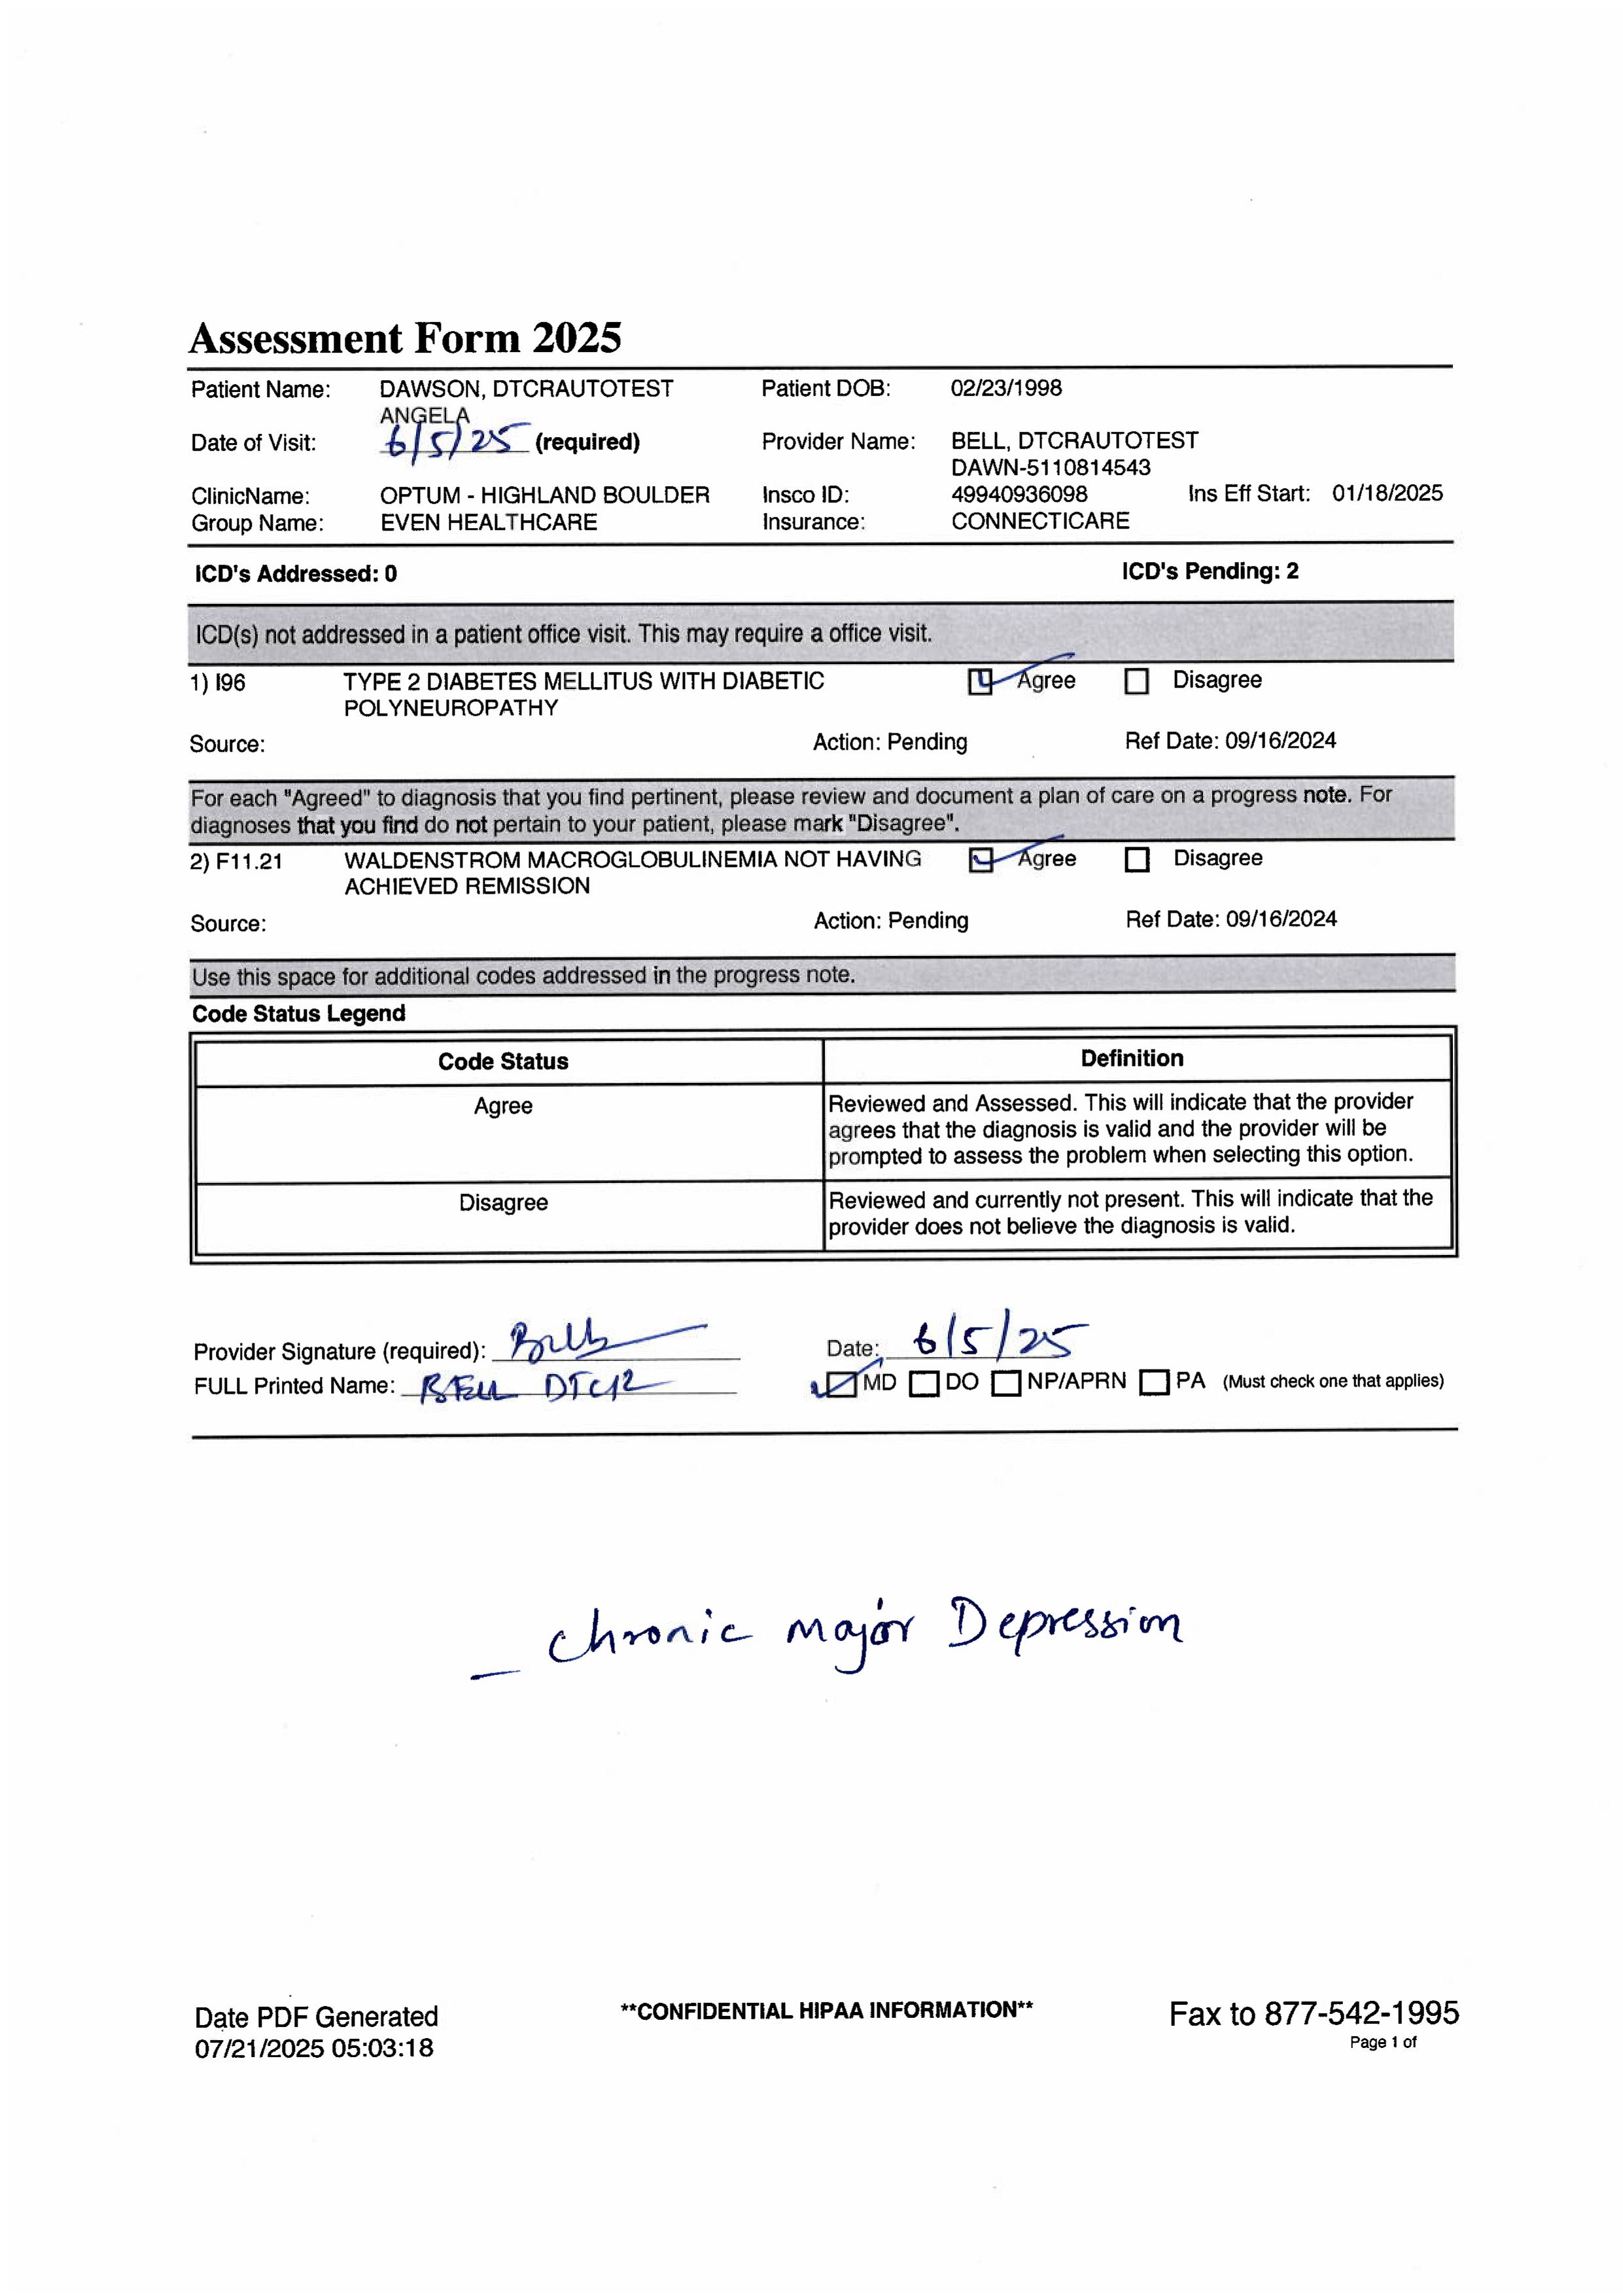 Assessment Form 2025
Patient Name: DAWSON, DTCRAUTOTEST ANGELA Patient DOB: 02/23/1998
Date of Visit: 6/5/25 (required) Provider Name: BELL, DTCRAUTOTEST DAWN-5110814543
ClinicName: OPTUM - HIGHLAND BOULDER Insco ID: 49940936098 Ins Eff Start: 01/18/2025
Group Name: EVEN HEALTHCARE Insurance: CONNECTICARE
ICD's Addressed: 0 ICD's Pending: 2
ICD(s) not addressed in a patient office visit. This may require a office visit.
1) I96 TYPE 2 DIABETES MELLITUS WITH DIABETIC Agree Disagree
POLYNEUROPATHY
Source: Action: Pending Ref Date: 09/16/2024
For each "Agreed" to diagnosis that you find pertinent, please review and document a plan of care on a progress note. For
diagnoses that you find do not pertain to your patient, please mark "Disagree".
2) F11.21 WALDENSTROM MACROGLOBULINEMIA NOT HAVING Agree Disagree
ACHIEVED REMISSION
Source: Action: Pending Ref Date: 09/16/2024
Use this space for additional codes addressed in the progress note.
Code Status Legend
Code Status Definition
Agree Reviewed and Assessed. This will indicate that the provider
agrees that the diagnosis is valid and the provider will be
prompted to assess the problem when selecting this option.
Disagree Reviewed and currently not present. This will indicate that the
provider does not believe the diagnosis is valid.
Provider Signature (required): Date: 6/5/25
FULL Printed Name: BELL MD DO NP/APRN PA (Must check one that applies)
– chronic major Depression
Date PDF Generated **CONFIDENTIAL HIPAA INFORMATION** Fax to 877-542-1995
07/21/2025 05:03:18 Page 1 of